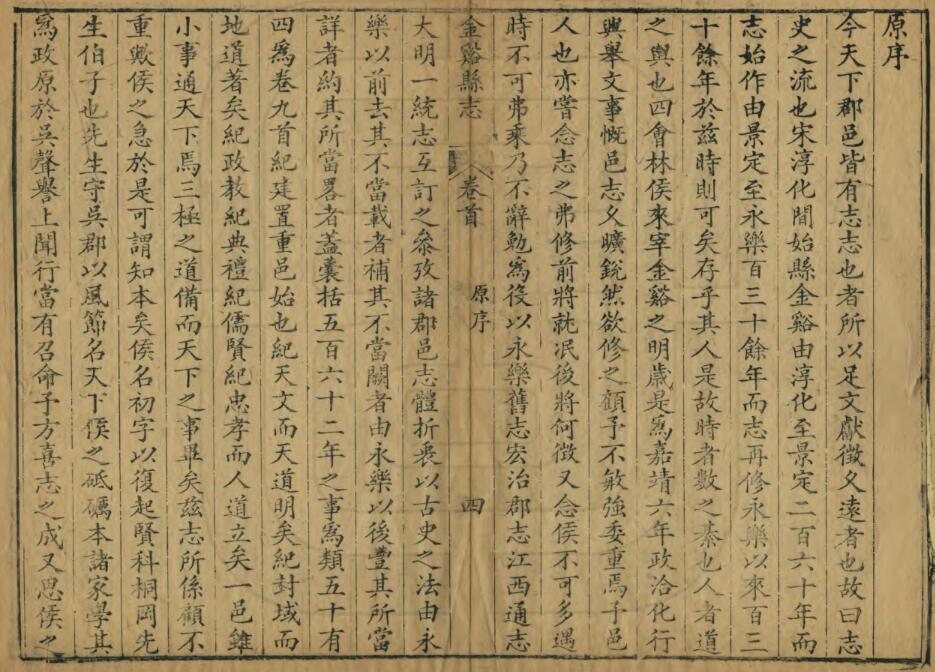 原序
今天下郡邑皆有志志也者所以足文獻徵久遠者也故曰志
史之流也宋淳化間始縣金谿由淳化至景定二百六十年而
志始作由景定至永樂百三十餘年而志再修永樂以來百三
十餘年於兹時則可矣存乎其人是故時者數之綦也人者道
之輿也四會林侯來宰金谿之明歲是爲嘉靖六年政洽化行
興舉文事慨邑志久曠銳然欲修之顧予不敏強委重焉予邑
人也亦嘗念志之弗修前將就泯後將何徵又念侯不可多遇
時不可弗乘乃不辭勉爲役以永樂舊志宏治郡志江西通志
金谿縣志 卷首 原序 四
大明一統志互訂之叅攷諸郡邑志體折衷以古史之法由永
樂以前去其不當載者補其不當闕者由永樂以後豐其所當
詳者約其所當畧者蓋囊括五百六十二年之事爲類五十有
四爲卷九首紀建置重邑始也紀天文而天道明矣紀封域而
地道著矣紀政教紀典禮紀儒賢紀忠孝而人道立矣一邑雖
小事通天下焉三極之道備而天下之事畢矣兹志所係顧不
重歟侯之急於是可謂知本矣侯名初字以復起賢科桐岡先
生伯子也先生守吳郡以風節名天下侯之砥礪本諸家學其
爲政原於吳聲譽上聞行當有召命予方喜志之成又思侯之